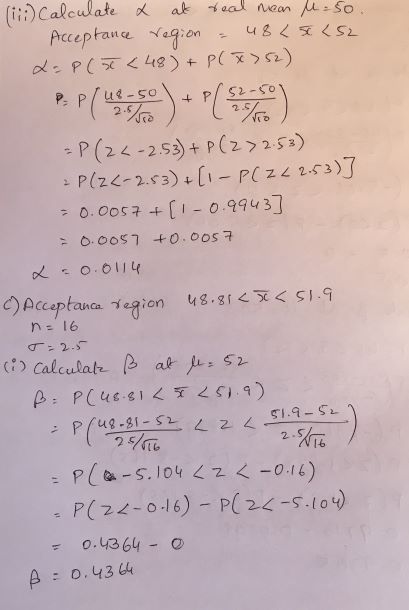 (iii) Calculate α at real mean μ=50.
Acceptance region = 48 < x̄ < 52
α = P(x̄ < 48) + P(x̄ > 52)
= P((48-50)/(2.5/√10)) + P((52-50)/(2.5/√10))
= P(z < -2.53) + P(z > 2.53)
= P(z < -2.53) + [1 - P(z < 2.53)]
= 0.0057 + [1 - 0.9943]
= 0.0057 + 0.0057
α = 0.0114
c) Acceptance region 48.81 < x̄ < 51.9
n = 16
σ = 2.5
(i) Calculate β at μ = 52
β = P(48.81 < x̄ < 51.9)
= P((48.81-52)/(2.5/√16) < z < (51.9-52)/(2.5/√16))
= P(-5.104 < z < -0.16)
= P(z < -0.16) - P(z < -5.104)
= 0.4364 - 0
β = 0.4364